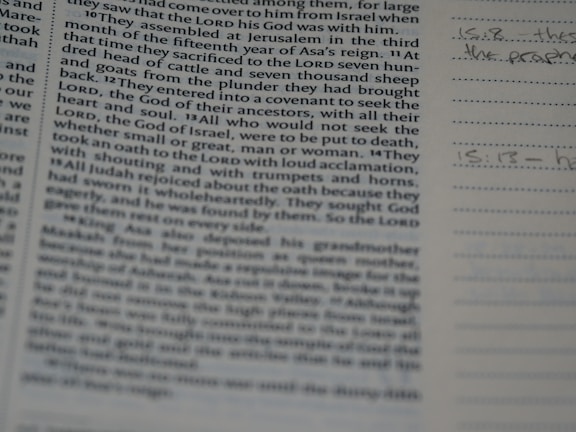 and
took
and
the
our
we
are
inst
settled among them, for large
had come over to him from Israel when
they saw that the LORD his God was with him.
10 They assembled at Jerusalem in the third
month of the fifteenth year of Asa's reign. 11 At
that time they sacrificed to the LORD seven hun-
dred head of cattle and seven thousand sheep
and goats from the plunder they had brought
back. 12 They entered into a covenant to seek the
LORD, the God of their ancestors, with all their
heart and soul. 13 All who would not seek the
LORD, the God of Israel, were to be put to death,
whether small or great, man or woman. 14 They
took an oath to the LORD with loud acclamation,
with shouting and with trumpets and horns.
15 All Judah rejoiced about the oath because they
had sworn it wholeheartedly. They sought God
eagerly, and he was found by them. So the LORD
gave them rest on every side.
16 King Asa also deposed his grandmother
Maakah from her position as queen mother,
because she had made a repulsive image for the
worship of Asherah. Asa cut it down, broke it up
and burned it in the Kidron Valley. 17 Although
he did not remove the high places from Israel,
Asa's heart was fully committed to the LORD all
his life. 18 He brought into the temple of God the
silver and gold and the articles that he and his
father had dedicated.
19 There was no more war until the thirty-fifth
year of Asa's reign.
15:8 - thes
the proph
15:13 -